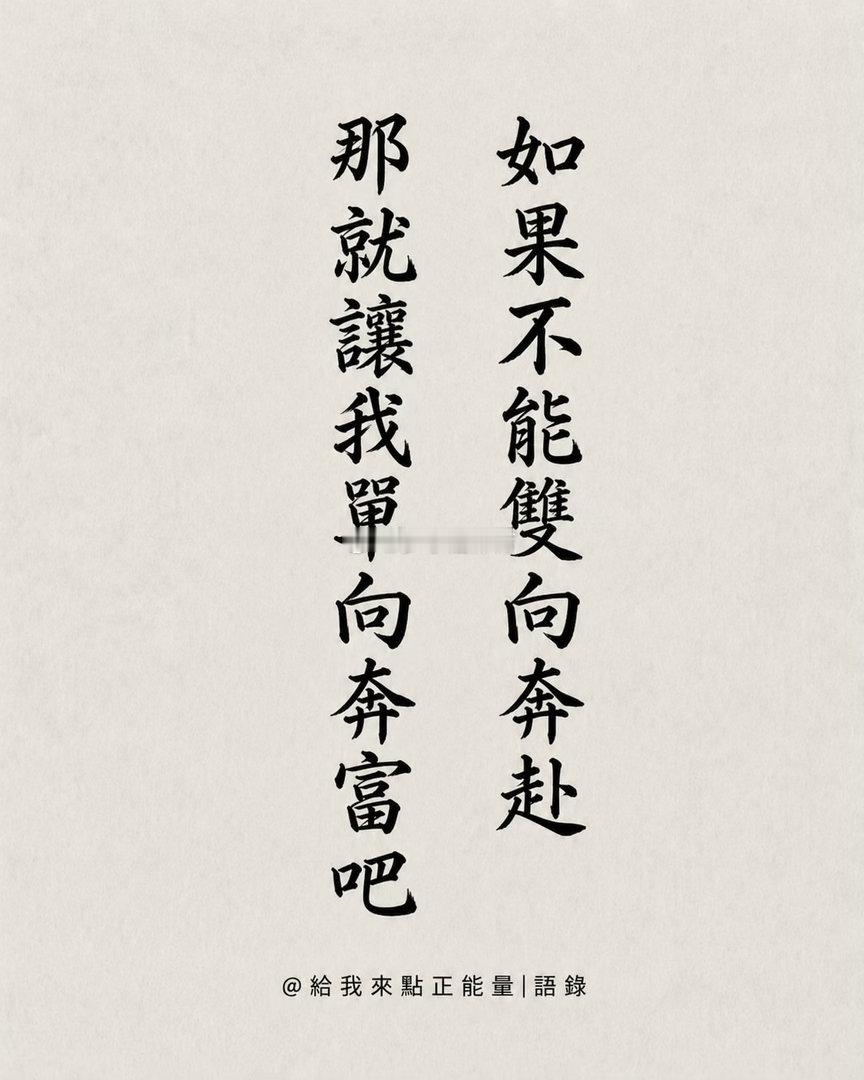 如果不能雙向奔赴
那就讓我單向奔富吧
@給我來點正能量|語錄